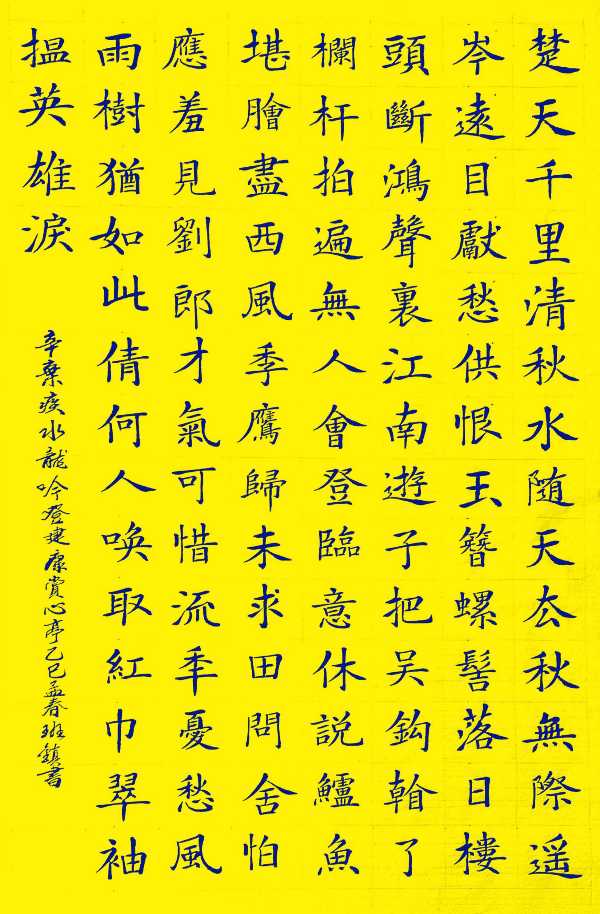 楚天千里清秋水随天去秋無際遥
岑遠目獻愁供恨玉簪螺髻落日樓
頭斷鴻聲裏江南遊子把吴鈎看了
欄杆拍遍無人會登臨意休説鱸魚
堪膾盡西風季鷹歸未求田問舍怕
應羞見劉郎才氣可惜流年憂愁風
雨樹猶如此倩何人唤取紅巾翠袖
揾英雄淚
辛棄疾水龍吟登建康賞心亭乙巳孟春班鎮書